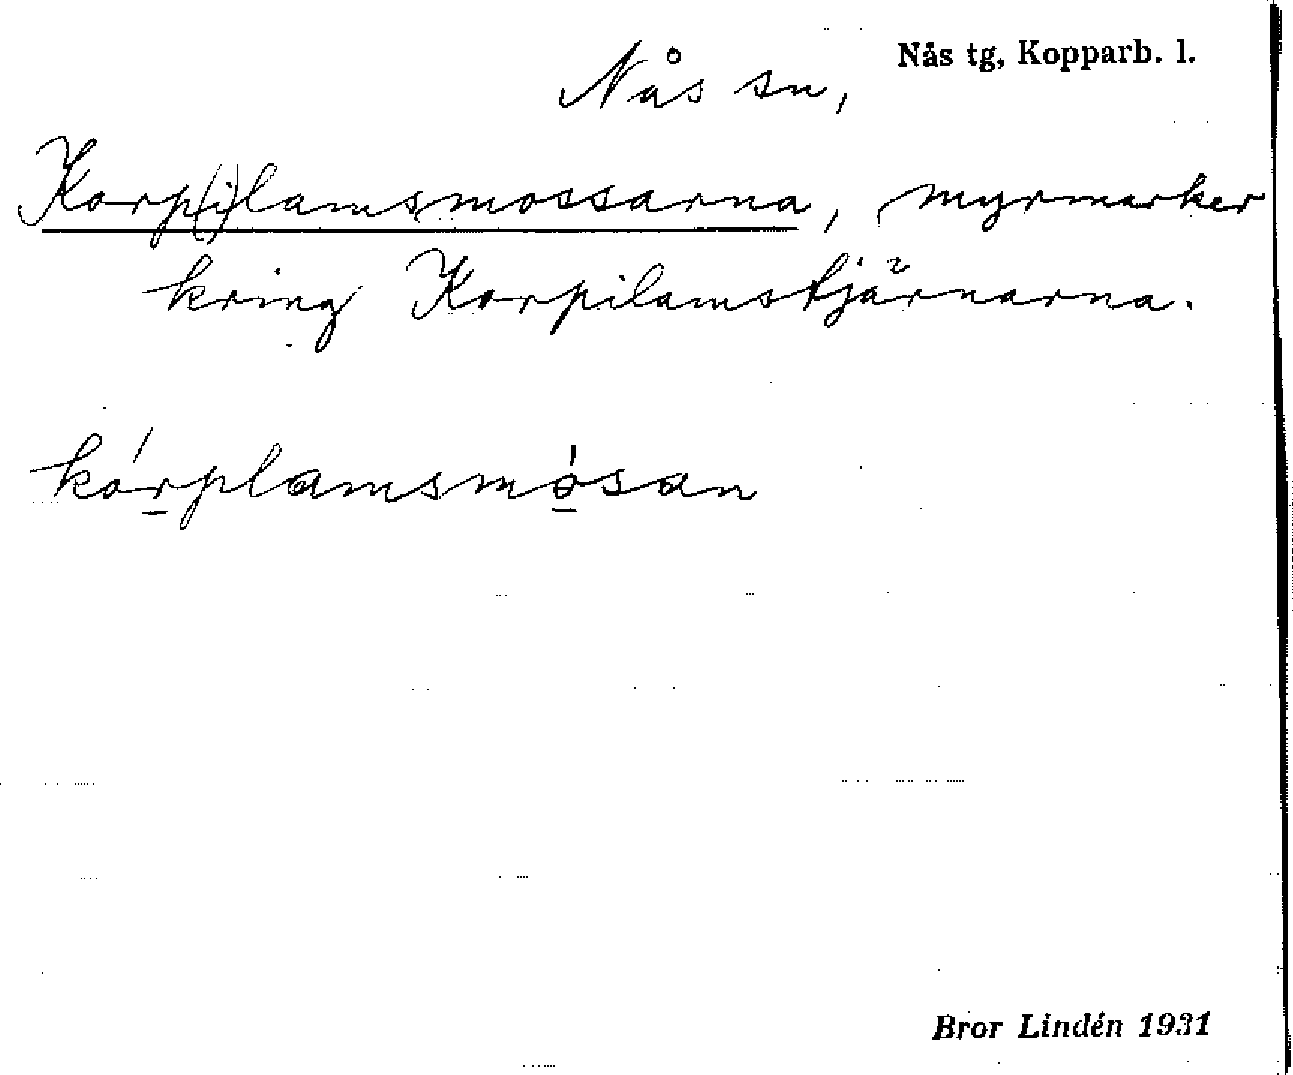 Nås tg, Kopparb. l.
Nås sn,
Korp(i)lamsmossarna, myrmarker
kring Korpilamstjärnarna.
kórplamsmósan
Bror Lindén 1931